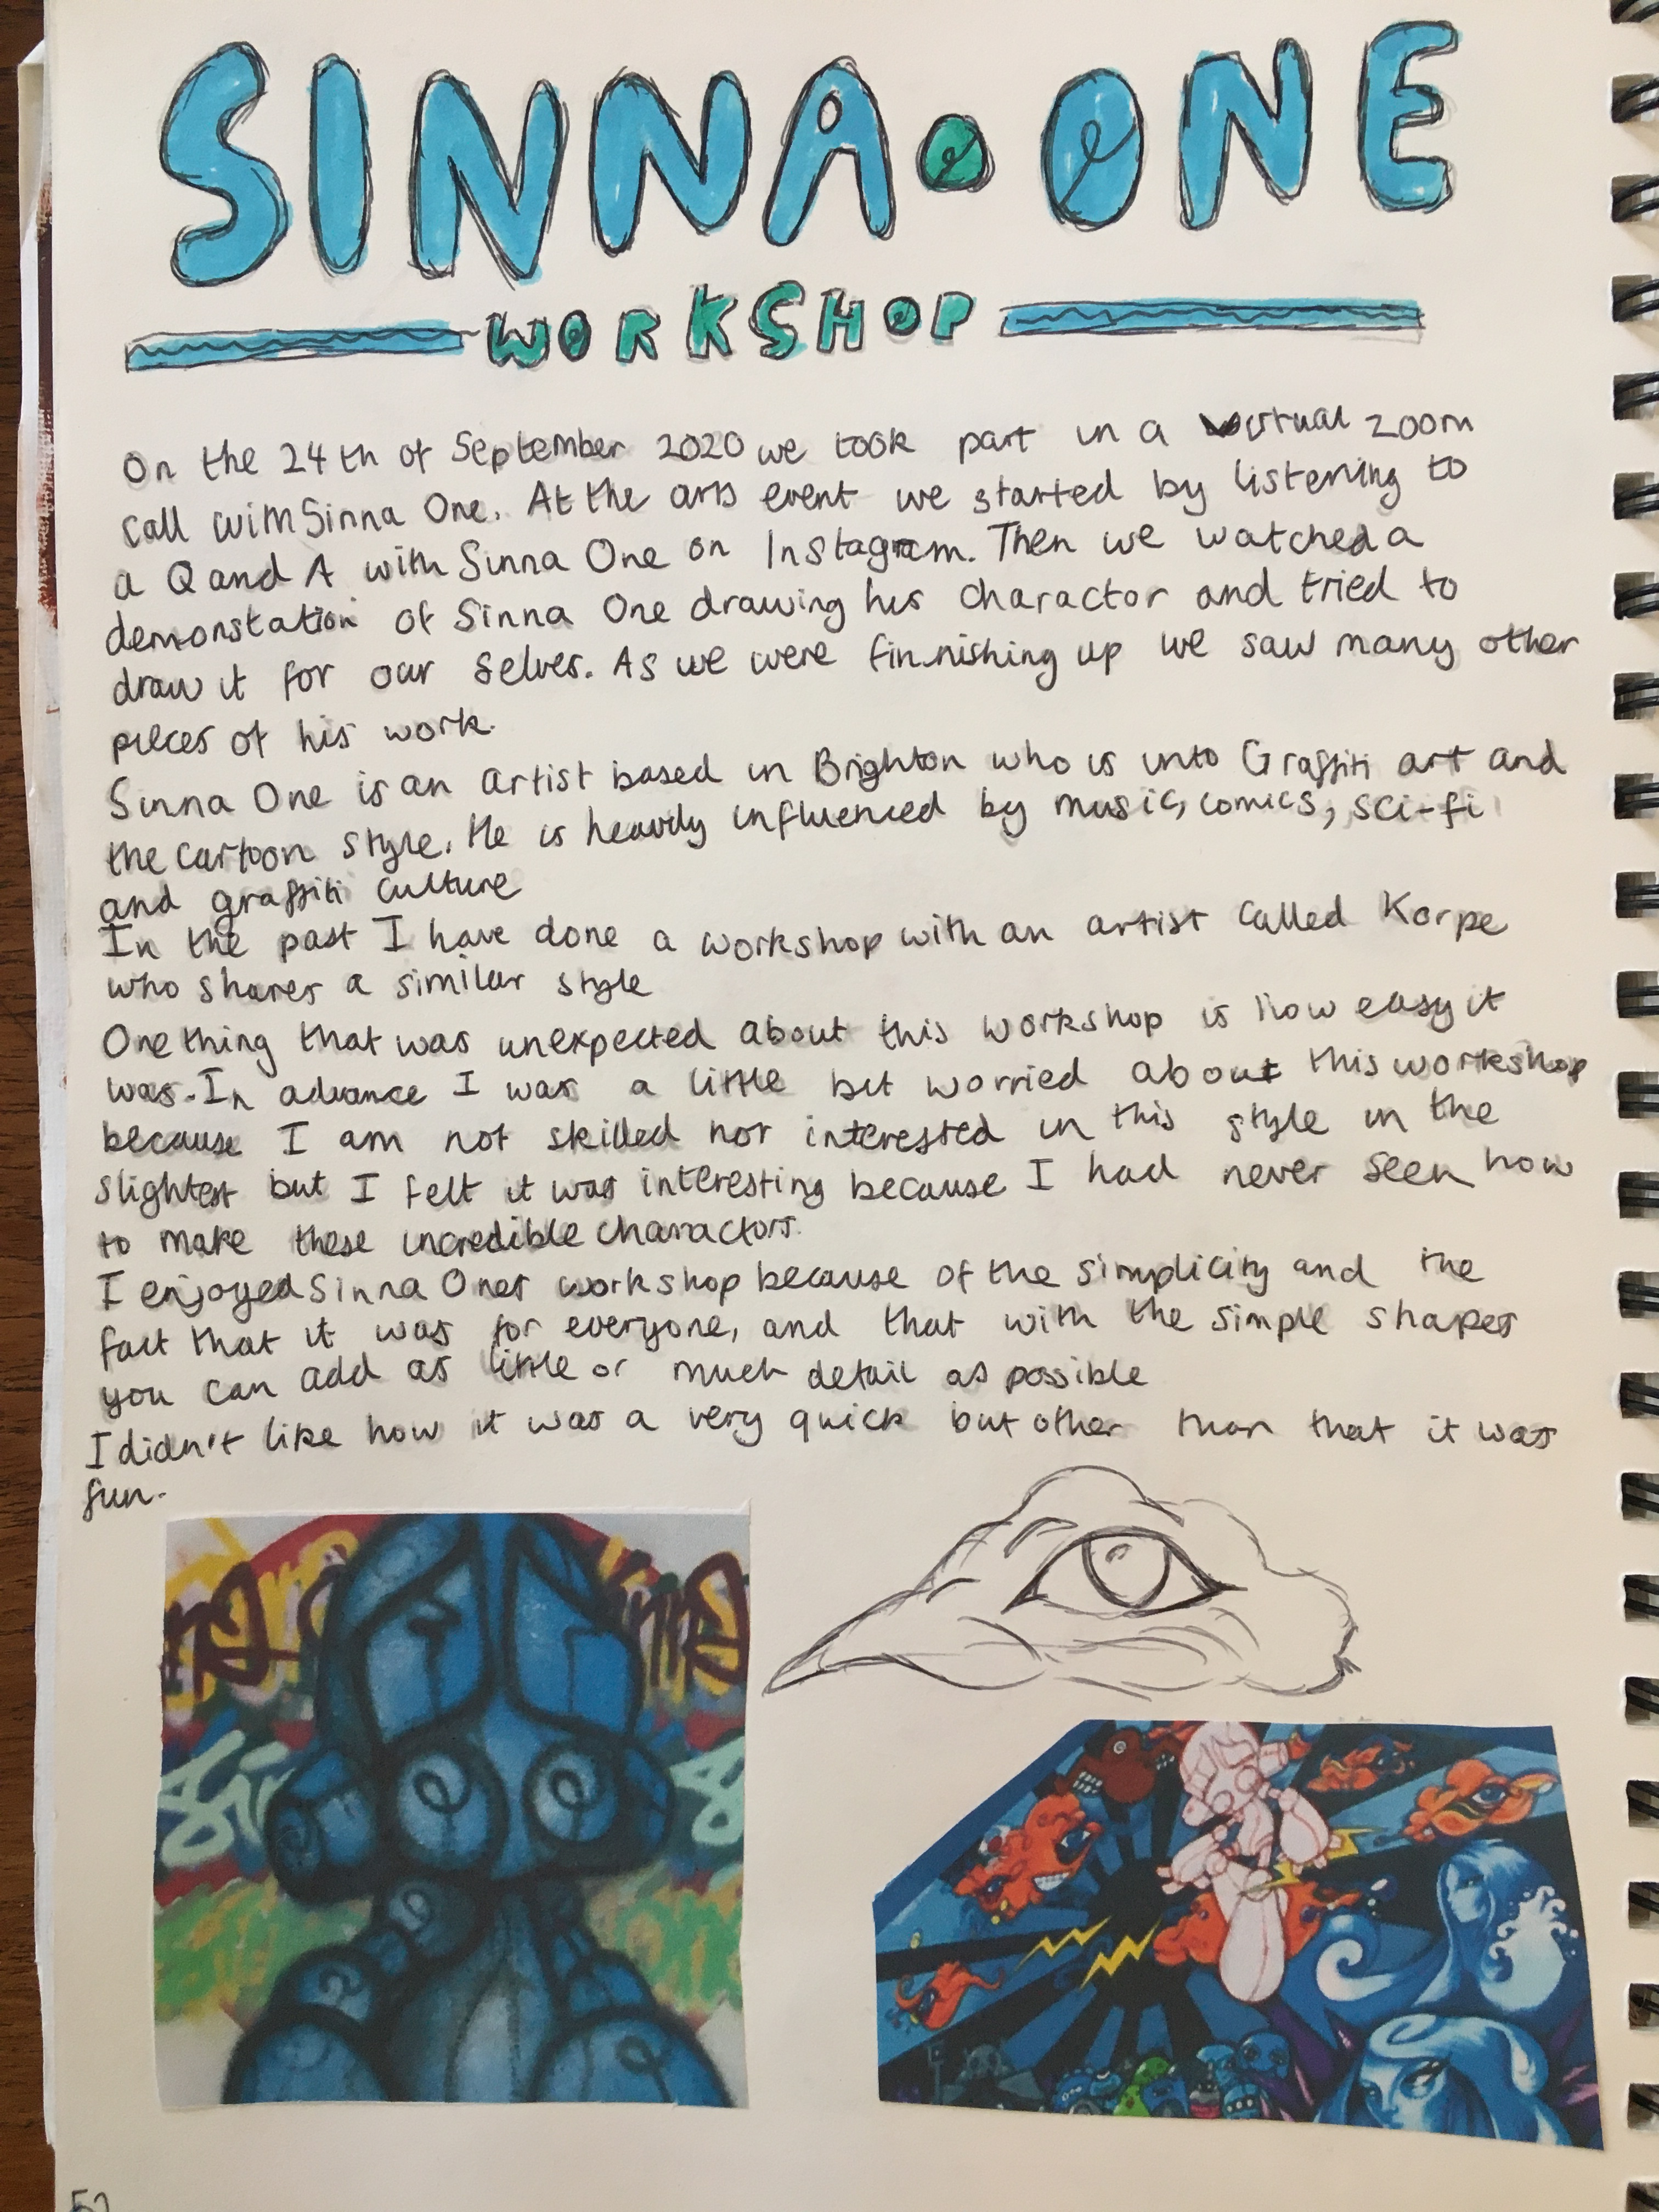 SINNA.ONE
WORKSHOP
On the 24th of September 2020 we took part in a virtual zoom
call with Sinna One. At the arts event we started by listening to
a Q and A with Sinna One on Instagram. Then we watched a
demonstation of Sinna One drawing his charactor and tried to
draw it for our selves. As we were finnishing up we saw many other
pieces of his work.
Sinna One is an artist based in Brighton who is into Graffiti art and
the cartoon style. He is heavily influenced by music, comics, sci-fi
and graffiti culture
In the past I have done a workshop with an artist called Korpe
who shares a similar style
One thing that was unexpected about this workshop is how easy it
was. In advance I was a little bit worried about this workshop
because I am not skilled nor interested in this style in the
slightest but I felt it was interesting because I had never seen how
to make these incredible charactors.
I enjoyed Sinna Ones workshop because of the simplicity and the
fact that it was for everyone, and that with the simple shapes
you can add as little or much detail as possible
I didn't like how it was a very quick but other than that it was
fun.